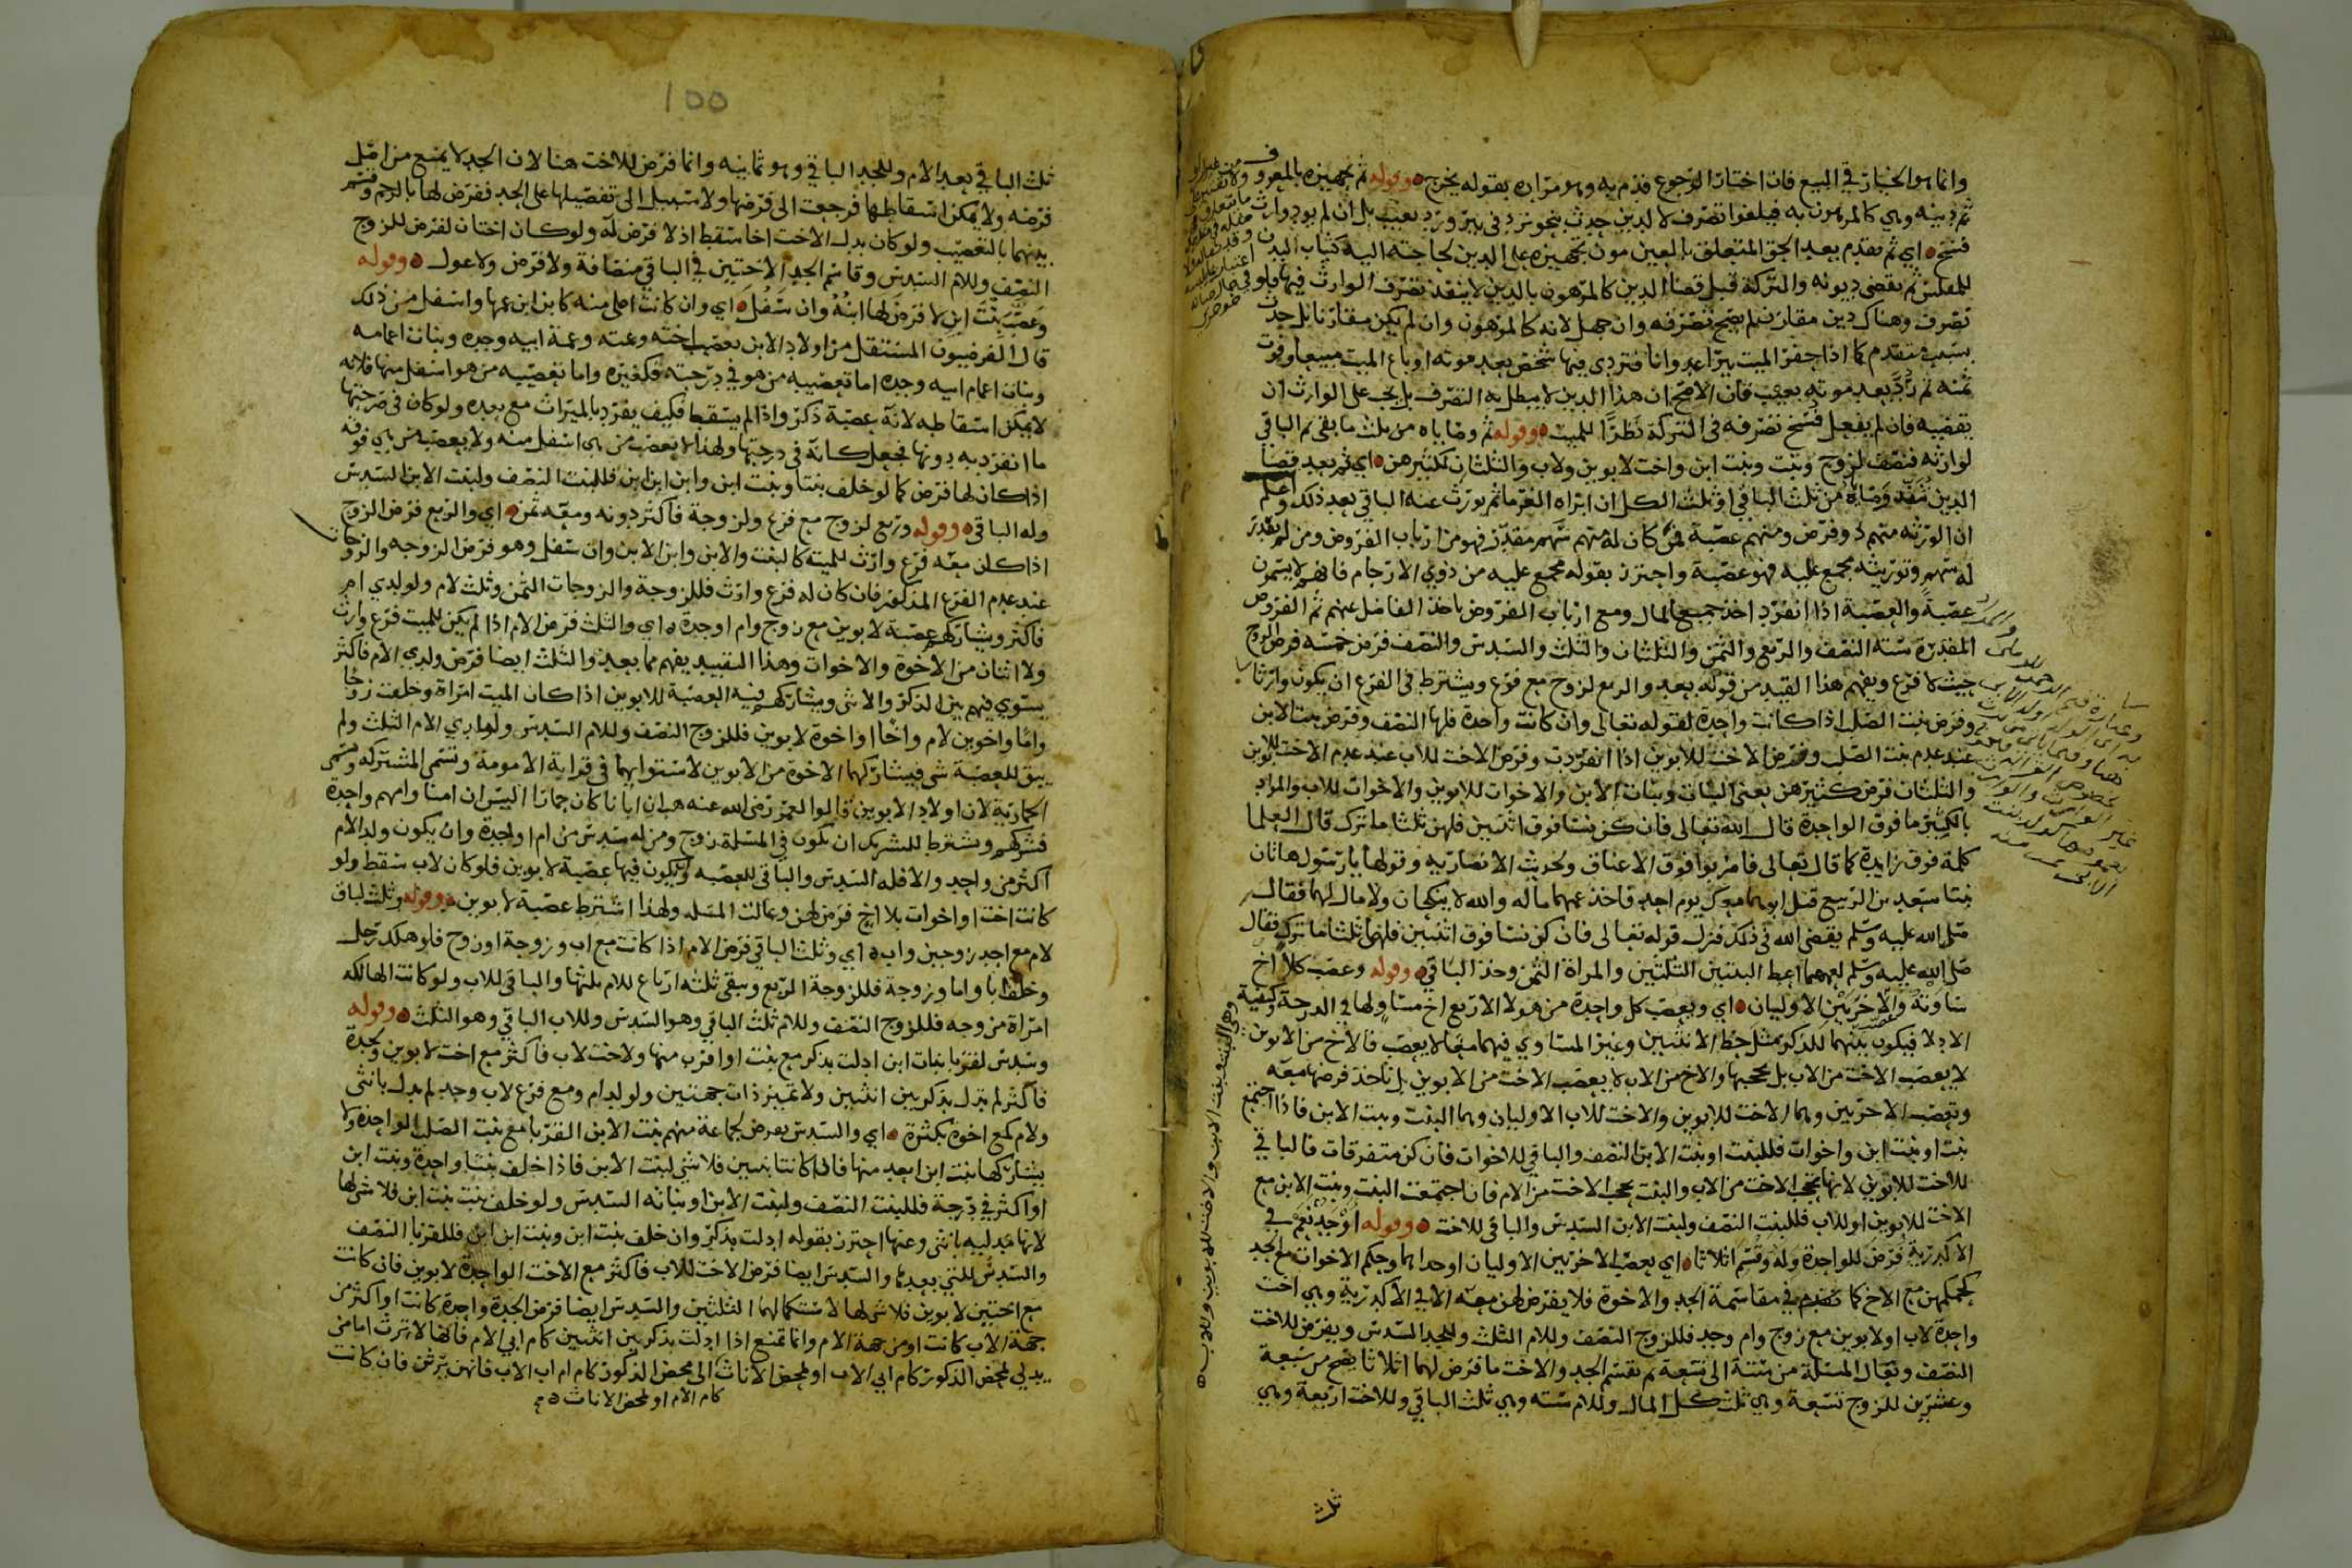 وانما هو الخيار في البيع فان اختار الرجوع قدم به وهو مراده بقوله يخرج ه وقوله ثم تجهيزه بالمعروف
ثم دينه وهي كالمرهون به فيلغوا تصرف لا لدين حدث بنحو تردٍ في بير ورد بعيب بل ان لم يود وارث
فسخ ه اي ثم يقدم بعد الحق المتعلق بالعين مون تجهيزه على الدين لحاجته اليه كثياب البدن
للمفلس ثم يقضى ديونه والتركة قبل قضا الدين كالمرهون بالدين لا ينفذ تصرف الوارث فيها ولو
تصرف وهناك دين مقارن لم يصح تصرفه وان جهل لانه كالمرهون وان لم يكن مقارنا بل حدث
بسبب متقدم كما اذا حفر الميت بيرا عدوانا فتردى فيها شخص بعد موته او باع الميت مبيعا وفوت
ثمنه ثم رد بعد موته بعيب فان الاصح ان هذا الدين لا يبطل به التصرف بل يجب على الوارث ان
يقضيه فان لم يفعل فسخ تصرفه في التركة نظرًا للميت ه وقوله ثم وصاياه من ثلث ما بقى ثم الباقي
لوارثه فنصف لزوج وبنت وبنت ابن واخت لابوين ولاب والثلثان لكثيرهن ه اي ثم بعد قضا
الدين تنفذ وصاياه من ثلث الباقي او ثلث الكل ان ابراه الغرما ثم يورث عنه الباقي بعد ذلك واعلم
ان الورثه منهم ذو فرض ومنهم عصبة فمن كان له منهم سهم مقدر فهو من ارباب الفروض ومن لم يقدر
له سهم وتوريثه مجمع عليه فهو عصبة واحترز بقوله مجمع عليه من ذوي الارحام فانهم لا يسمون
عصبة والعصبة اذا انفرد اخذ جميع المال ومع ارباب الفروض ياخذ الفاضل عنهم ثم الفروض
المقدرة ستة النصف والربع والثمن والثلثان والثلث والسدس والنصف فرض خمسه فرض الزوج
حيث لا فرع ويفهم هذا القيد من قوله بعد والربع لزوج مع فرع ويشترط في الفرع ان يكون وارثا
وفرض بنت الصلب اذا كانت واحدة لقوله تعالى وان كانت واحدة فلها النصف وفرض بنت الابن
عند عدم بنت الصلب وفرض الاخت للابوين اذا انفردت وفرض الاخت للاب عند عدم الاخت للابوين
والثلثان فرض كثيرهن يعني البنات وبنات الابن والاخوات للابوين والاخوات للاب والمراد
بالكثير ما فوق الواحدة قال الله تعالى فان كن نسا فوق اثنتين فلهن ثلثا ما ترك قال العلما
كلمة فوق زايدة كما قال تعالى فاضربوا فوق الاعناق ولحديث الانصارية وقولها يا رسول هاتان
بنتا سعد بن الربيع قتل ابوهما معك يوم احد فاخذ عمهما ماله والله لا ينكحان ولا مال لهما فقال
صلى الله عليه وسلم يقضي الله في ذلك فنزل قوله تعالى فان كن نسا فوق اثنتين فلهن ثلثا ما ترك فقال
صلى الله عليه وسلم لعمهما اعط البنتين الثلثين والمراة الثمن وخذ الباقي ه وقوله وعصب كلا اخ
ساوته والاخريين الاوليان ه اي ويعصب كل واحدة من هولا الاربع اخ مساوٍ لها في الدرجة وكيفية
الادلا فيكون بينهما للذكر مثل حظ الانثيين وغير المساوي فيهما منها لا يعصب فالاخ من الابوين
لا يعصب الاخت من الاب بل يحجبها والاخ من الاب لا يعصب الاخت من الابوين بل تاخذ فرضها معه
ويعصب الاخريين وهما الاخت للابوين والاخت للاب الاوليان وهما البنت وبنت الابن فاذا اجتمع
بنت او بنت ابن واخوات فللبنت او بنت الابن النصف والباقي للاخوات فان كن متفرقات فالباقي
للاخت للابوين لانها تحجب الاخت من الاب والبنت تحجب الاخت من الام فان اجتمعت البنت وبنت الابن مع
الاخت للابوين او للاب فللبنت النصف ولبنت الابن السدس والباقي للاخت ه وقوله او جد نعم في
الاكدرية فرض للواحدة وله وقسم اثلاثا ه اي يعصب الاخريين الاوليان او جد وحكم الاخوات مع الجد
كحكمهن مع الاخ كما تقدم في مقاسمة الجد والاخوة فلا يفرض لهن معه الا في الاكدرية وهي اخت
واحدة لاب او لابوين مع زوج وام وجد فللزوج النصف وللام الثلث وللجد السدس ويفرض للاخت
النصف وتعال المسئلة من ستة الى تسعة ثم نقسم الجد والاخت ما فرض لهما اثلاثا يصح من سبعة
وعشرين للزوج تسعة وهي ثلث كل المال وللام سته وهي ثلث الباقي وللاخت اربعة وهي
ثلث
وهو البنت وبنت الابن والاخت للابوين وللاب ه
100
ثلث الباقي بعد الام وللجد الباقي وهو ثمانيه وانما فرض للاخت هنا لان الجد لا يمنع من اصل
فرضه ولا يمكن اسقاطها فرجعت الى فرضها ولا سبيل الى تفضيلها على الجد ففرض لها بالرحم وقسم
بينهما بالتعصيب ولو كان بدل الاخت اخا سقط اذ لا فرض له ولو كان اختان لفرض للزوج
النصف وللام السدس وقاسم الجد الاختين في الباقي مناصفة ولا فرض ولا عول ه وقوله
وعصب بنت ابن لا فرض لها ابنه وان سفل ه اي وان كانت اعلى منه كابن ابن عمها واسفل من ذلك
قال الفرضيون المستفل من اولاد الابن يعصب اخته وعمته وعمة ابيه وجده وبنات اعمامه
وبنات اعمام ابيه وجده اما تعصيبه من هو في درجته فكغيره واما تعصيبه من هو اسفل منها فلانه
لا يمكن اسقاطه لانه عصبة ذكر واذا لم يسقط فكيف يفرد بالميراث مع بعده ولو كان في درجتها
ما انفرد به دونها فجعل كانه في درجتها ولهذا لا يعصب من هي اسفل منه ولا يعصب من هي فوقه
اذا كان لها فرض كما لو خلف بنتا وبنت ابن وابن ابن ابن فللبنت النصف ولبنت الابن السدس
وله الباقي ه وقوله وربع لزوج مع فرع ولزوجة فاكثر دونه ومعه ثمن ه اي والربع فرض الزوج
اذا كان معه فرع وارث للميته كالبنت والابن وابن الابن وان سفل وهو فرض الزوجه والزوجات
عند عدم الفرع المذكور فان كان له فرع وارث فللزوجة والزوجات الثمن وثلث لام ولولدي ام
فاكثر ويشاركهم عصبة لابوين مع زوج وام او جدة ه اي والثلث فرض الام اذا لم يكن للميت فرع وارث
ولا اثنان من الاخوة والاخوات وهذا التقييد يفهم مما بعد والثلث ايضا فرض ولدي الام فاكثر
يستوي فيهم بين الذكر والانثى ويشاركهم فيه العصبة للابوين اذا كان الميت امراة وخلفت زوجا
واما واخوين لام واخا او اخوة لابوين فللزوج النصف وللام السدس ولولدي الام الثلث ولم
يبق للعصبة شى فيشاركهما الاخوة من الابوين لاستوايهما في قرابة الامومة وتسمى المشتركه وتسمى
الحمارية لان اولاد الابوين قالوا لعمر رضي الله عنه هب ان ابانا كان حمارا اليس ان امنا وامهم واحدة
فشركهم ويشترط للتشريك ان يكون في المسئلة زوج ومن له سدس من ام او جدة وان يكون ولد الام
اكثر من واحد والا فله السدس والباقي للعصبه وان يكون فيها عصبة لابوين فلو كان لاب سقط ولو
كانت اختا او اخوات بلا اخ فرض لهن وعالت المسله ولهذا اشترط عصبة لابوين ه وقوله وثلث الباقي
لام مع احد زوجين واب ه اي وثلث الباقي فرض الام اذا كانت مع اب وزوجة او زوج فلو هلك رجل
وخلف ابا واما وزوجة فللزوجة الربع ويبقى ثلثه ارباع للام ثلثها والباقي للاب ولو كانت الهالكه
امراة مزوجه فللزوج النصف وللام ثلث الباقي وهو السدس وللاب الباقي وهو الثلث ه وقوله
وسدس لقربا بنات ابن ادلت بذكر مع بنت او اقرب منها ولاخت لاب فاكثر مع اخت لابوين ولجدة
فاكثر لم تدل بذكر بين انثيين ولا تميز ذات جهتين ولولد ام ومع فرع لاب وجد لم يدل بانثى
ولام كمع اخوة بكثرة ه اي والسدس يفرض لجماعة منهم بنت الابن القربا مع بنت الصلب الواحدة ولا
يشاركها بنت ابن ابعد منها فان كانتا بنتين فلا شي لبنت الابن فاذا خلف بنتا واحدة وبنت ابن
او اكثر في درجة فللبنت النصف ولبنت الابن او بناته السدس ولو خلف بنت بنت ابن فلا شى لها
لانها مدليه بانثى وعنها احترز بقوله ادلت بذكر وان خلف بنت ابن وبنت ابن ابن فللقربا النصف
والسدس للتي بعدها والسدس ايضا فرض الاخت للاب فاكثر مع الاخت الواحدة لابوين فان كانت
مع اختين لابوين فلا شى لها لاستكمالهما الثلثين والسدس ايضا فرض الجدة واحدة كانت او اكثر من
جهة الاب كانت او من جهة الام وانما تمنع اذا ادلت بذكر بين انثيين كام ابي الام فانها لا ترث اما من
يدلي بمحض الذكور كام ابي الاب او بمحض الاناث الى محض الذكور كام ام اب الاب فانهن يرثن فان كانت
كام الام او بمحض الاناث ه